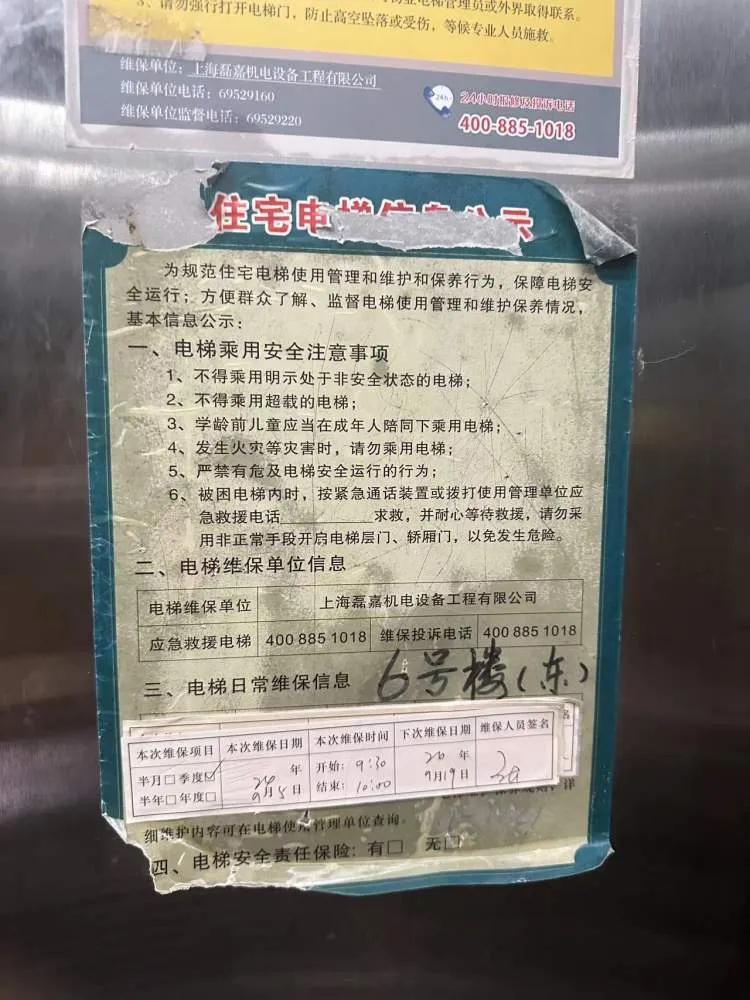 3、请勿强行打开电梯门，防止高空坠落或受伤，等候专业人员施救。
维保单位：上海磊嘉机电设备工程有限公司
维保单位电话：69529160
维保单位监督电话：69529220
24h
24小时报修及投诉电话
400-885-1018
住宅电梯信息公示
为规范住宅电梯使用管理和维护和保养行为，保障电梯安
全运行；方便群众了解、监督电梯使用管理和维护保养情况，
基本信息公示：
一、电梯乘用安全注意事项
1、不得乘用明示处于非安全状态的电梯；
2、不得乘用超载的电梯；
3、学龄前儿童应当在成年人陪同下乘用电梯；
4、发生火灾等灾害时，请勿乘用电梯；
5、严禁有危及电梯安全运行的行为；
6、被困电梯内时，按紧急通话装置或拨打使用管理单位应
急救援电话________求救，并耐心等待救援，请勿采
用非正常手段开启电梯层门、轿厢门，以免发生危险。
二、电梯维保单位信息
电梯维保单位 上海磊嘉机电设备工程有限公司
应急救援电梯 400 885 1018 维保投诉电话 400 885 1018
三、电梯日常维保信息 6号楼（东）
本次维保项目 本次维保日期 本次维保时间 下次维保日期 维保人员签名
半月□ 季度☑ 年 开始：9:30 年
半年□ 年度□ 9月5日 结束：10:00 9月19日
细维护内容可在电梯使用管理单位查询。
四、电梯安全责任保险：有□ 无□